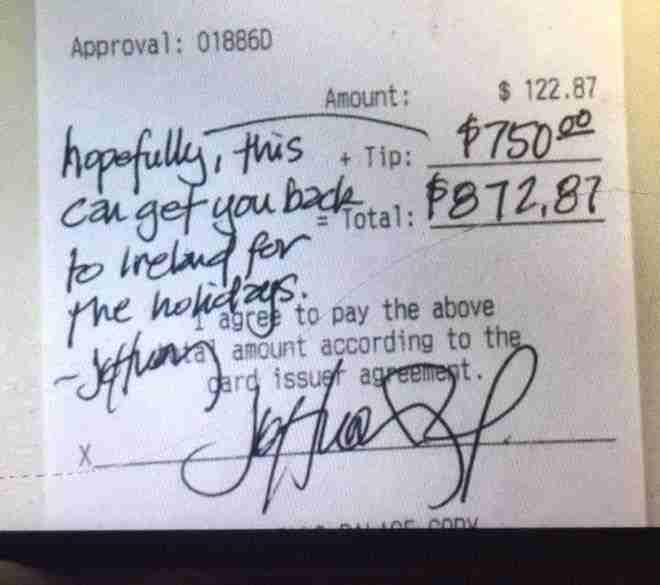 Approval: 01886D
Amount: $ 122.87
+ Tip: $750.00
= Total: $872.87
hopefully, this
can get you back
to Ireland for
the holidays.
- Jeffrey
I agree to pay the above
amount according to the
card issuer agreement.
X
COPY